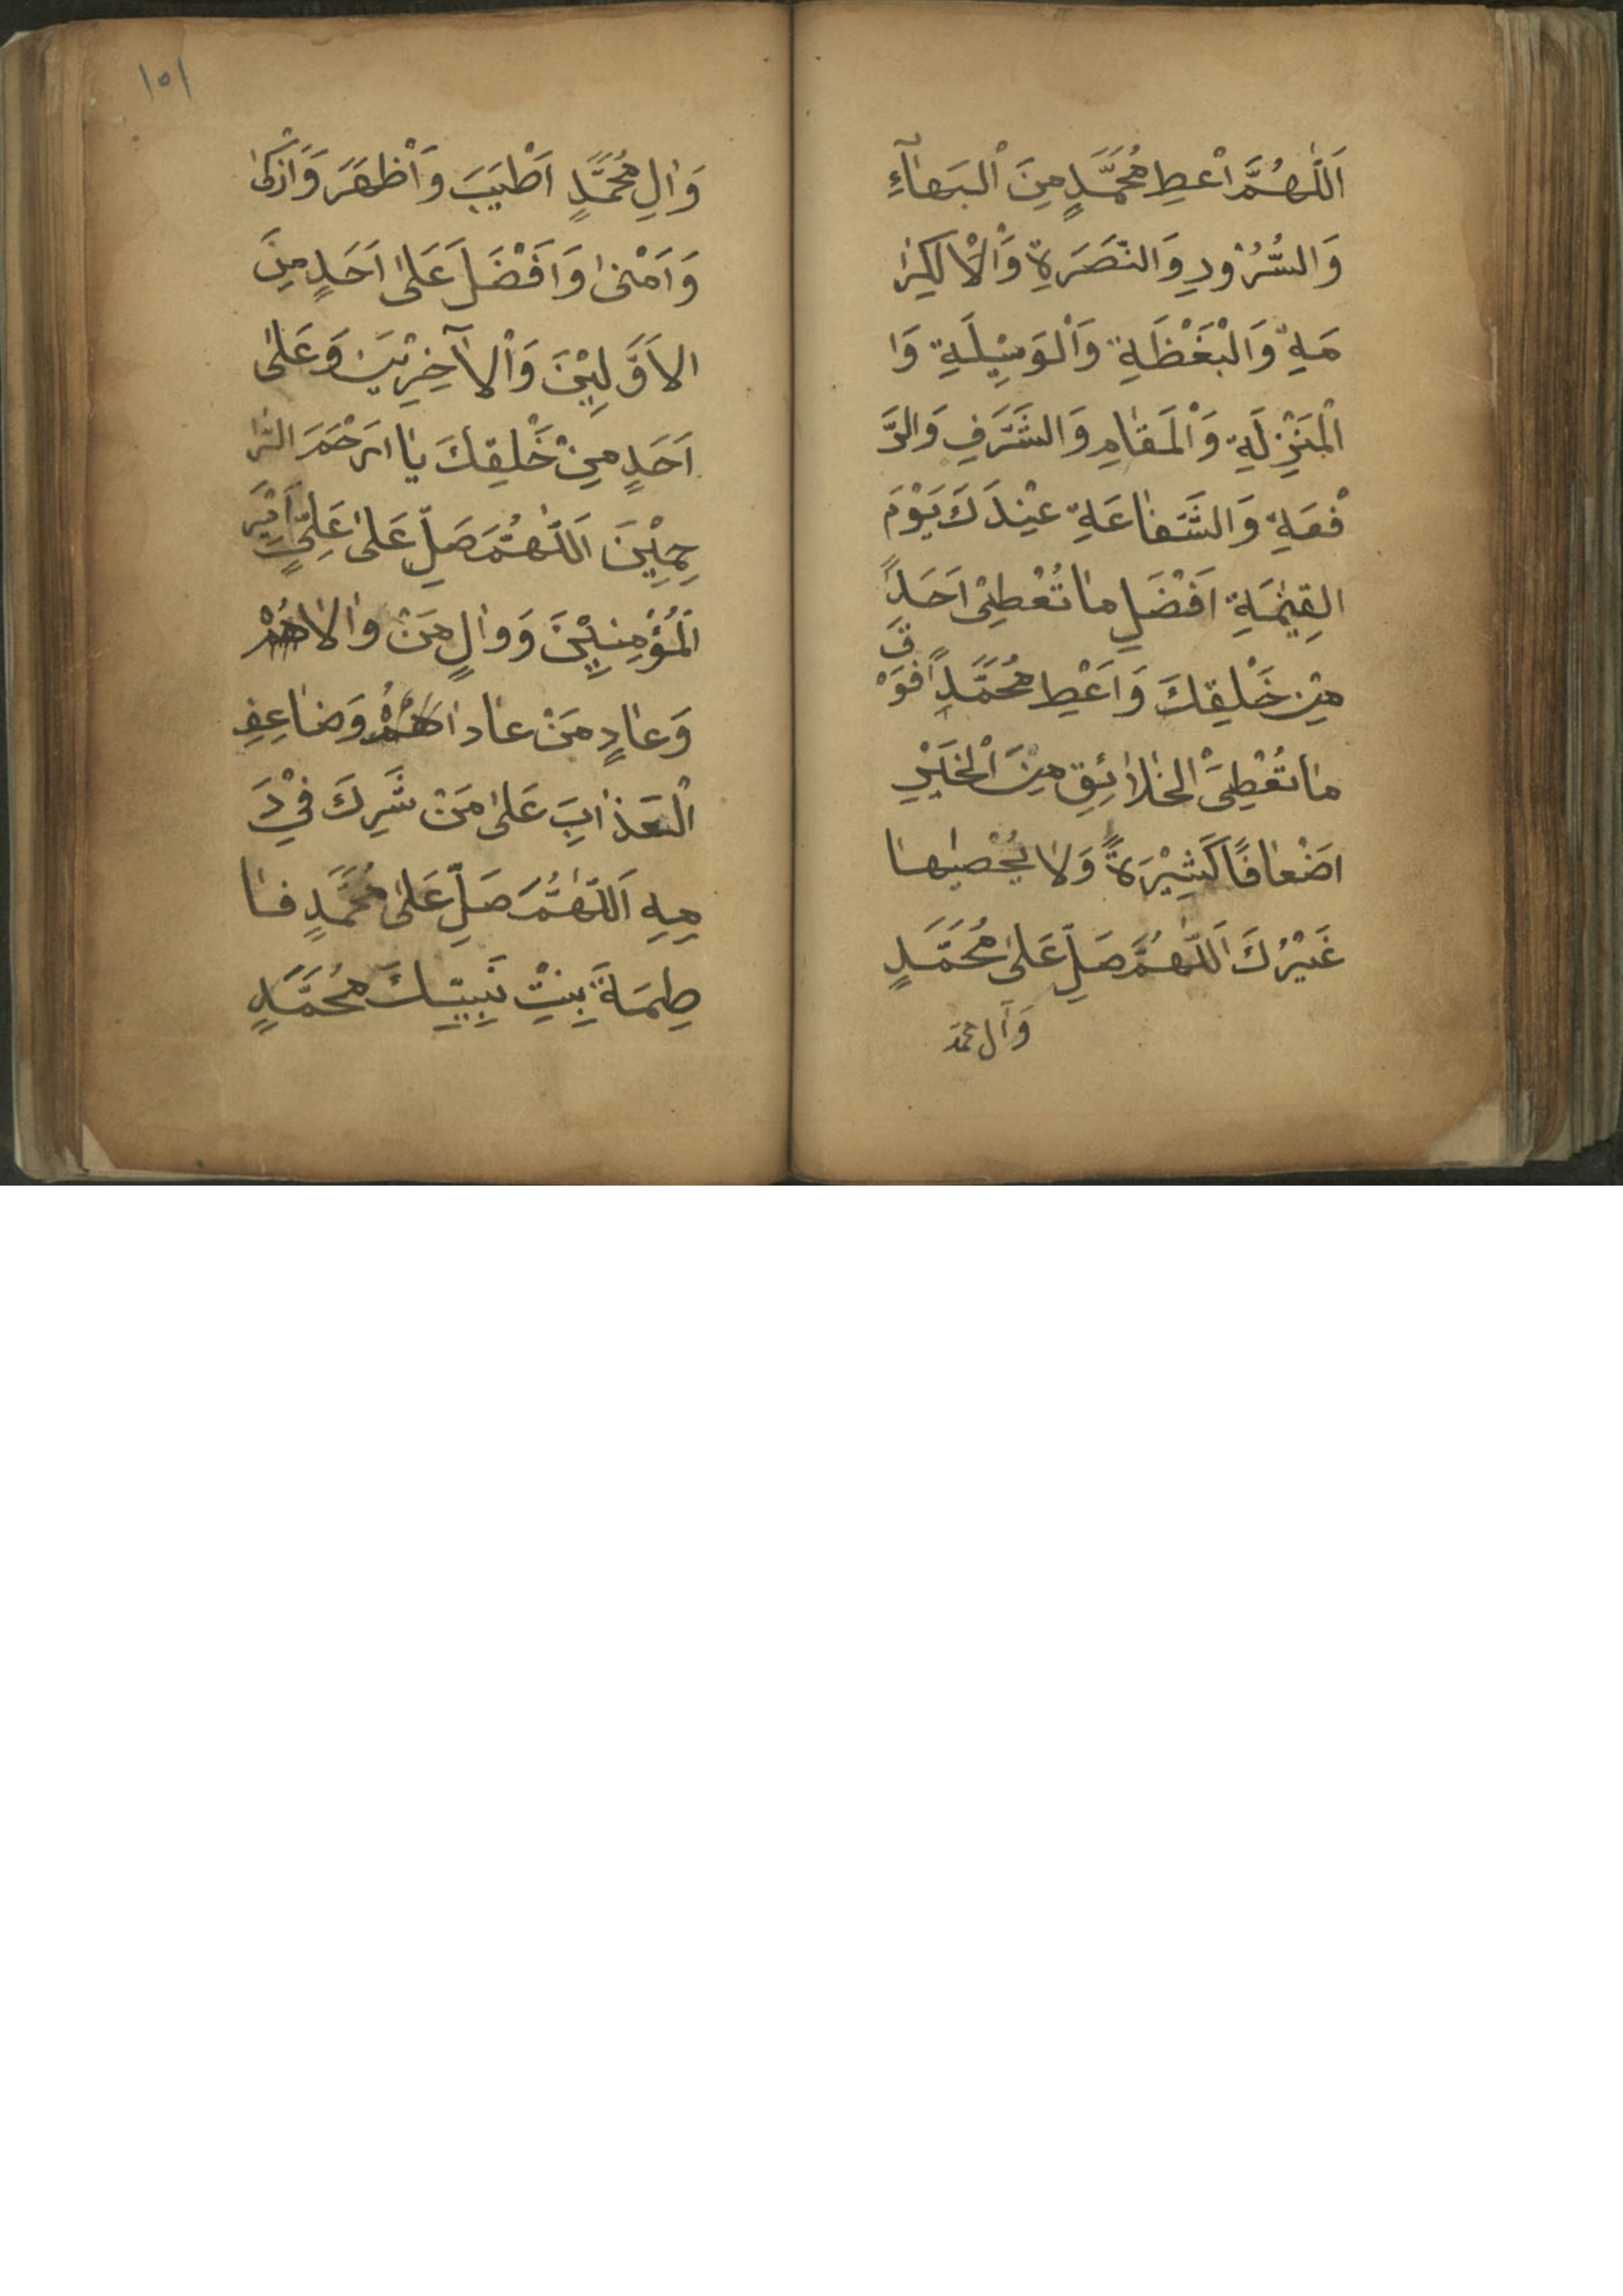 اَللّٰهُمَّ اَعْطِ مُحَمَّدٍ مِنَ الْبَهٰآءِ
وَالسُّرُوْرِ وَالنَّصَرَةِ وَالْاكِرٰ
مَةِ وَالْبَغْظَةِ وَالْوَسِيْلَةِ وَا
لْمَنْزِلَةِ وَالْمَقٰامِ وَالشَّرَفِ وَالرَّ
فْعَةِ وَالشَّفٰاعَةِ عِنْدَكَ يَوْمَ
الْقِيٰمَةِ اَفْضَلِ مٰا تُعْطِىْ اَحَدًا
مِنْ خَلْقِكَ وَاَعْطِ مُحَمَّدًا فَوْقَ
مٰا تُعْطِىْ الْخَلٰائِقِ مِنَ الْخَيْرِ
اَضْعٰافًا كَثِيْرَةً وَلٰا يُحْصِيْهٰا
غَيْرُكَ اَللّٰهُمَّ صَلِّ عَلىٰ مُحَمَّدٍ
وَآل محمد
١٥١
وَاٰلِ مُحَمَّدٍ اَطْيَبَ وَاَطْهَرَ وَاَزْكىٰ
وَاَمْنىٰ وَاَفْضَلَ عَلىٰ اَحَدٍ مِنَ
الاَوَّلِيْنَ وَالْاٰخِرِيْنَ وَعَلىٰ
اَحَدٍ مِنْ خَلْقِكَ يٰا اَرْحَمَ الرّٰا
حِمِيْنَ اَللّٰهُمَّ صَلِّ عَلىٰ عَلِىٍّ اَمِيْرِ
الْمُؤْمِنِيْنَ وَوٰالِ مَنْ وٰالٰاهُمْ
وَعٰادِ مَنْ عٰادٰاهُمْ وَضٰاعِفِ
الْعَذٰابَ عَلىٰ مَنْ شَرِكَ فِىْ دَ
مِهِ اَللّٰهُمَّ صَلِّ عَلىٰ مُحَمَّدٍ فٰا
طِمَةَ بِنْتِ نَبِيِّكَ مُحَمَّدٍ